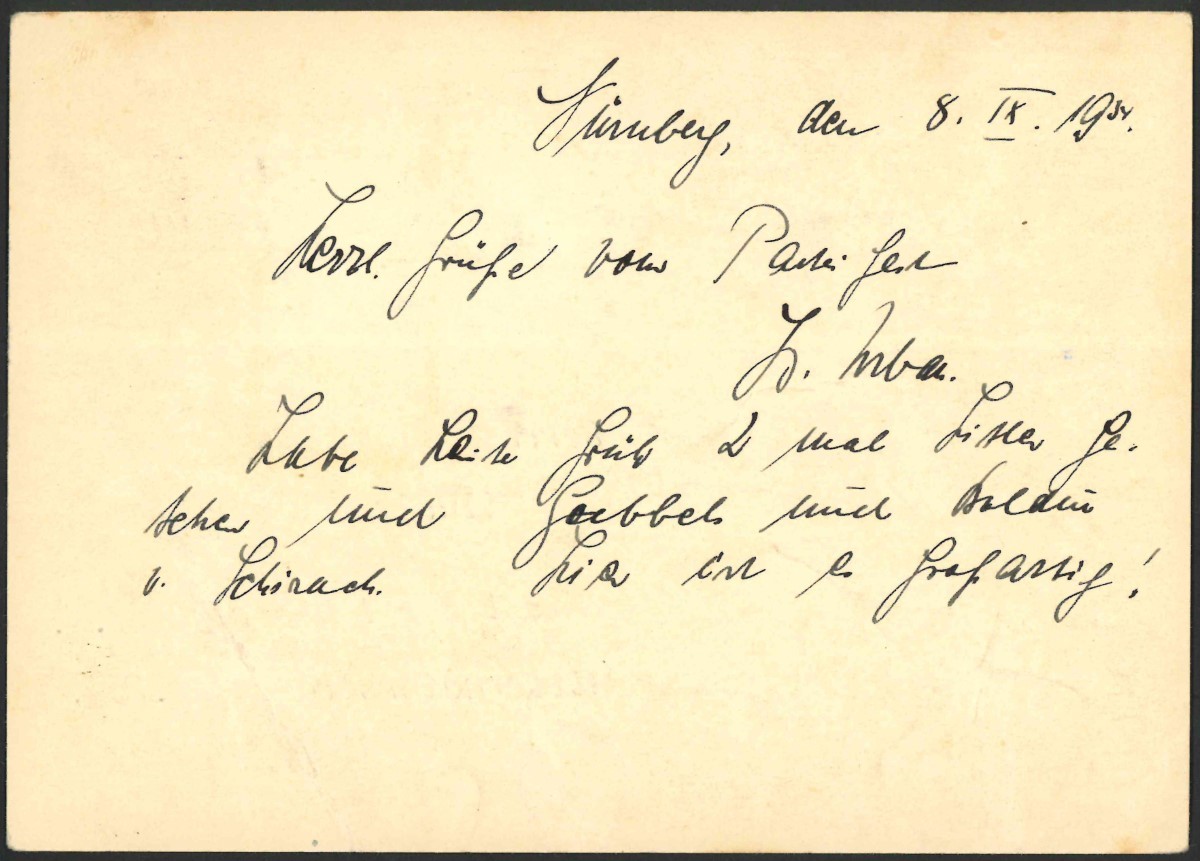 Nürnberg, den 8. IX. 1934.
Herzl. Grüße vom Parteifest
Habe heute früh 2 mal Hitler ge-
sehen und Goebbels und Baldur
v. Schirach. Hier ist es großartig!